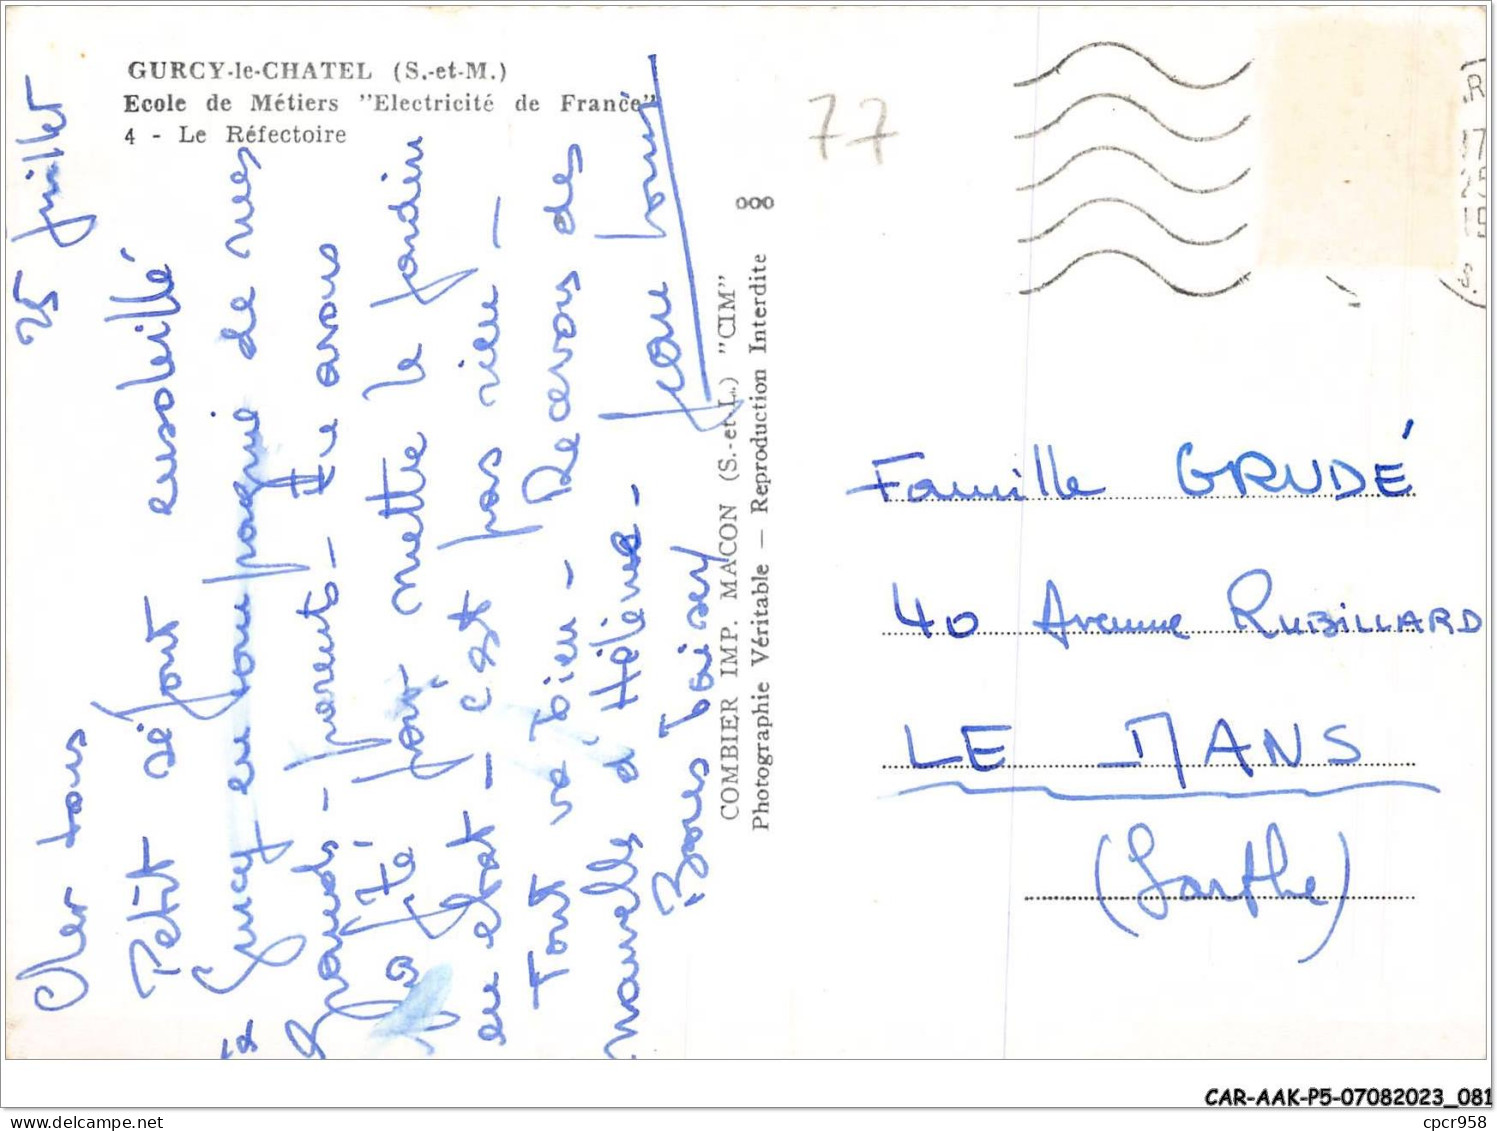 GURCY-le-CHATEL (S.-et-M.)
Ecole de Métiers "Electricité de France"
4 - Le Réfectoire
25 juillet
Cher tous
Petit séjour ensoleillé
à Gurcy en compagnie de mes
grands-parents - Ils avons
été pour mettre le jardin
en état - c'est pas rien -
Tout va bien - Recevons des
nouvelles d'Hélène -
Bons baisers Jean Louis
COMBIER IMP. MACON (S.-et-L.) "CIM"
Photographie Véritable — Reproduction Interdite
77
Famille GRUDÉ
40 Avenue RUBILLARD
LE MANS
(Sarthe)
CAR-AAK-P5-07082023_081
delcampe.net
cpcr958